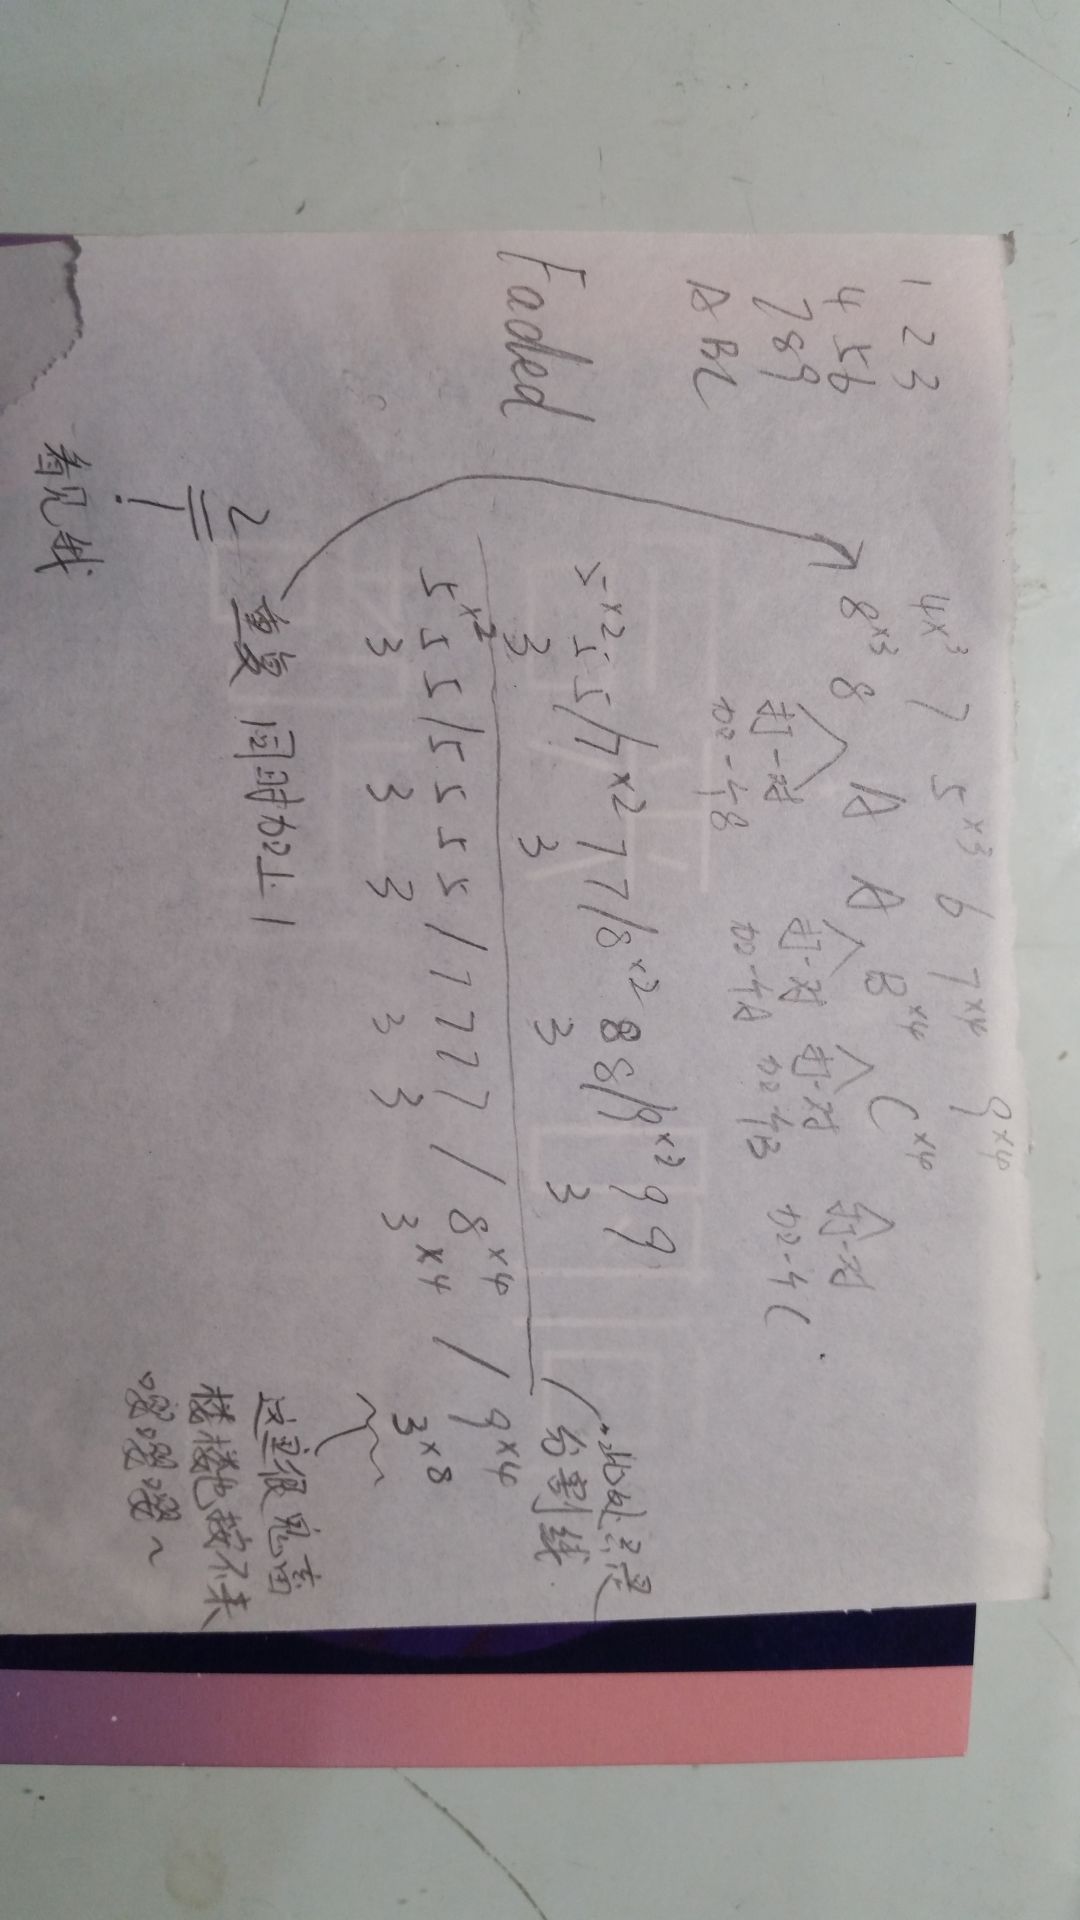 1 2 3
4 5 6
7 8 9
A B C
Faded
4×3 7 5×3 6 7×4 9×4
8×3 8 A A B×4 C×4
打一对 打一对 打一对 打一对
加一个8 加一个A 加一个B 加一个C
5×2 5 5 / 4×2 7 7 / 8×2 8 8 / 9×2 9 9
3 3 3 3
此处是
分割线
5×2 5 5 / 5 5 5 5 / 7 7 7 7 / 8×4 / 9×4
3 3 3 3 3 3×4 3×8
这里很鬼畜
楼楼也按不来
嘤嘤嘤~
2 重复 同时加上1
!
看见我